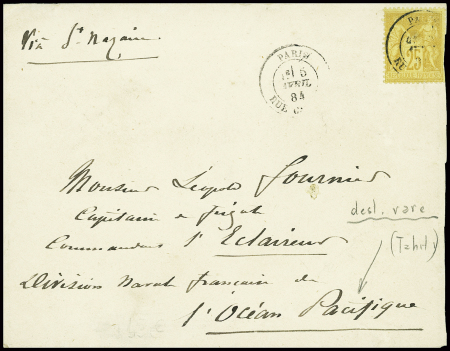 Via St. Nazaire.
PARIS
5
AVRIL
84
PA
25
Monsieur Léopold Fournier
Capitaine de frégate
Commandant l'Eclaireur
dest. rare
(Tahiti)
Division Navale française de
l'Océan Pacifique